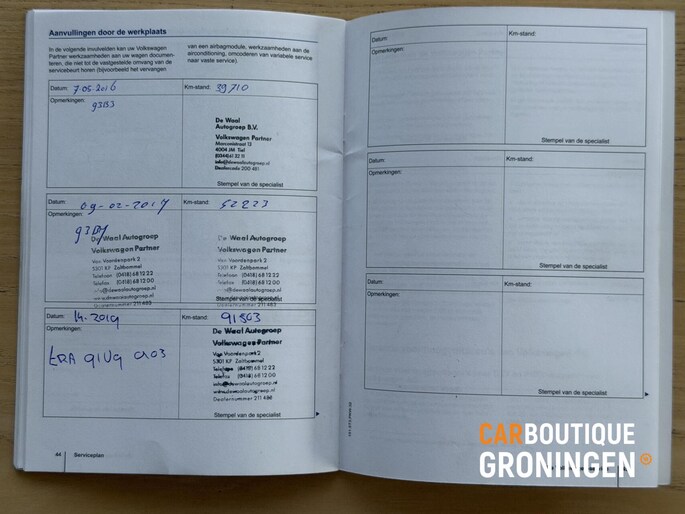 Aanvullingen door de werkplaats
In de volgende invulvelden kan uw Volkswagen
Partner werkzaamheden aan uw wagen documen-
teren, die niet tot de vastgestelde omvang van de
servicebeurt horen (bijvoorbeeld het vervangen
van een airbagmodule, werkzaamheden aan de
airconditioning, omcoderen van variabele service
naar vaste service).
Datum: 7.05-2016
Km-stand: 39710
Opmerkingen:
De Waal
Autogroep B.V.
Volkswagen Partner
Marconistraat 13
4004 JM Tiel
Stempel van de specialist
Datum: 09-02-2017
Km-stand: 52223
Opmerkingen:
De Waal Autogroep
Volkswagen Partner
Van Voordenpark 2
5301 KP Zaltbommel
Telefoon (0418) 68 12 22
Telefax (0418) 68 12 00
De Waal Autogroep
Volkswagen Partner
Van Voordenpark 2
5301 KP Zaltbommel
Telefoon (0418) 68 12 22
Telefax (0418) 68 12 00
Stempel van de specialist
Datum: 14-2019
Km-stand: 91503
Opmerkingen:
De Waal Autogroep
Volkswagen Partner
Van Voordenpark 2
5301 KP Zaltbommel
Telefoon (0418) 68 12 22
Telefax (0418) 68 12 00
info@dewaalautogroep.nl
www.dewaalautogroep.nl
Dealernummer 211 485
Stempel van de specialist
44 Serviceplan
Datum:
Km-stand:
Opmerkingen:
Stempel van de specialist
Datum:
Km-stand:
Opmerkingen:
Stempel van de specialist
Datum:
Km-stand:
Opmerkingen:
Stempel van de specialist
CARBOUTIQUE
GRONINGEN